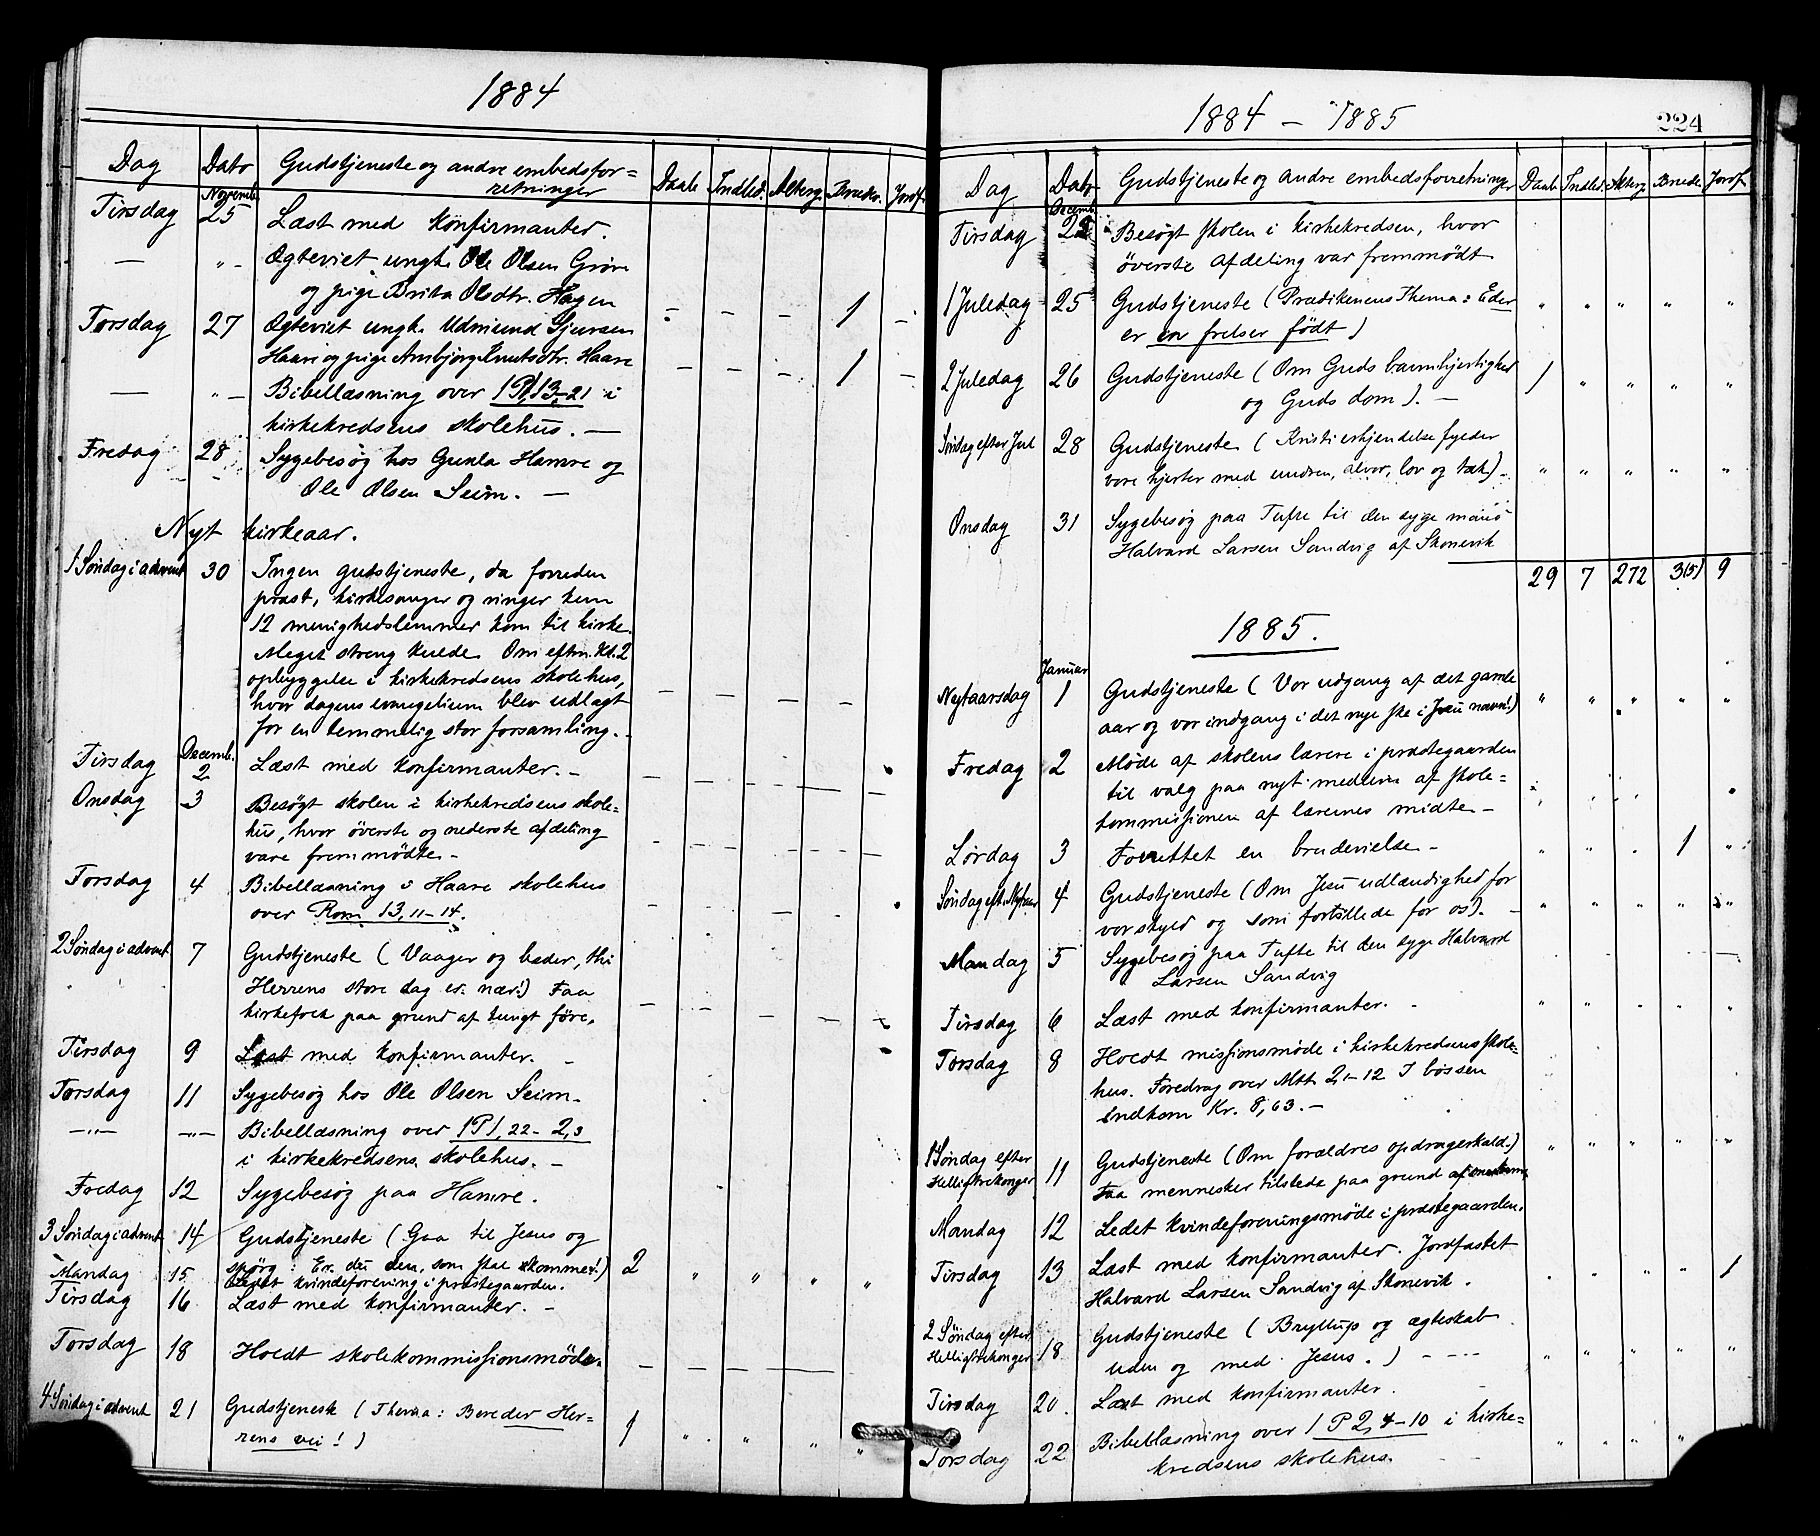 1884
Dag Dato Gudstjeneste og andre embedsfor=
retninger Daab Indled. Alterg. Brudev. Jordf.
Novemb.
Tirsdag 25 Læst med konfirmanter.
— " - Ægteviet ungk. Ole Olsen Grøve
og pige Brita Olsdtr. Hagen - - - 1 -
Torsdag 27 Ægteviet ungk. Udmund Sjursen
Haare og pige Ambjørg Knutsdtr. Haare - - - 1 -
— " - Bibellæsning over 1 P 1,13-21 i
kirkekredsens skolehus. —
Fredag 28 Sygebesøg hos Gunla Hamre og
Ole Olsen Seim. —
Nyt kirkeaar.
1 Søndag i advent 30 Ingen gudstjeneste, da forreden
præst, kirkesanger og ringer kun
12 menighedslemmer kom til kirke.
Meget streng kulde. Om eftm. Kl. 2
opbyggelse i kirkekredsens skolehus,
hvor dagens evangelium blev udlagt
for en temmelig stor forsamling. -
Decemb.
Tirsdag 2 Læst med konfirmanter. -
Onsdag 3 Besøgt skolen i kirkekredsens skole=
hus, hvor överste og nederste afdeling
vare fremmödte -
Torsdag 4 Bibellæsning i Haare skolehus
over Rom 13,11-14.
2 Søndag i advent 7 Gudstjeneste (Vaager og beder, thi
Herrens store dag er nær!) Faa
kirkefolk paa grund af tungt føre.
Tirsdag 9 Læst med konfirmanter. -
Torsdag 11 Sygebesøg hos Ole Olsen Seim.
—"— —"— Bibellæsning over 1 P 1,22-2,3
i kirkekredsens skolehus. -
Fredag 12 Sygebesøg paa Hamre.
3 Søndag i advent 14 Gudstjeneste (Gaa til Jesus og
spørg: Er du den, som skal komme!) 2 " " " "
Mandag 15 Ledet kvindeforening i præstegaarden.
Tirsdag 16 Læst med konfirmanter. -
Torsdag 18 Holdt skolekommissionsmøde.
4 Søndag i advent 21 Gudstjeneste (Thema: Bereder Her=
rens vei!) 1 " " " "
1884 - 1885
224
Dag Dato Gudstjeneste og andre embedsforretninger Daab Indled. Alterg. Brudev. Jordf.
Decemb.
Tirsdag Besøgt skolen i kirkekredsen, hvor
överste afdeling var fremmödt
1 Juledag 25 Gudstjeneste (Prædikenens Thema: Eder " " " " "
er en frelser født)
2 Juledag 26 Gudstjeneste (Om Guds barmhjertighed 1 " " " "
og Guds dom). —
Søndag efter Jul 28 Gudstjeneste (Kristi erkjendelse fylder
vore hjerter med undren, alvor, lov og tak). " " " " "
Onsdag 31 Sygebesøg paa Tufte til den syge
Halvard Larsen Sandvig af Skonevik
29 7 272 3(5) 9
1885.
Januar
Nytaarsdag 1 Gudstjeneste (Vor udgang af det gamle
aar og vor indgang i det nye ske i Jesu navn!) " " " " "
Fredag 2 Møde af skolens lærere i præstegaarden
til valg paa nyt medlem af skole=
kommissionen af lærernes midte -
Lørdag 3 Forrettet en brudevielse - " " " 1 "
Søndag eft. Nytaar 4 Gudstjeneste (Om Jesu udlændighed for
vor skyld og som forbillede for os). - " " " " "
Mandag 5 Sygebesøg paa Tufte til den syge Halvard
Larsen Sandvig
Tirsdag 6 Læst med konfirmanter. -
Torsdag 8 Holdt missionsmøde i kirkekredsens skole=
hus. Foredrag over Mtt. 2,1-12 I bøssen
indkom Kr. 8,63. -
1 Søndag efter
Helligtrekonger 11 Gudstjeneste (Om forældres opdragerkald.) " " " " "
Faa mennesker tilstede paa grund af
Mandag 12 Ledet kvindeforeningsmøde i præstegaarden.
Tirsdag 13 Læst med konfirmanter. Jordfæstet
Halvard Larsen Sandvig af Skonevik. " " " " 1
2 Søndag efter
Helligtrekonger 18 Gudstjeneste (Bryllup og ægteskab
uden og med Jesus.) " " " " "
Tirsdag 20. Læst med konfirmanter.
Torsdag 22 Bibellæsning over 1 P 2,4-10 i kirke=
kredsens skolehus.